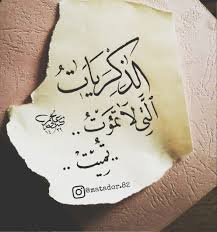 الذِّكْرَيَاتُ
الَّتِي لَا تَمُوتُ ..
.. تُمِيتْ
@matador.82